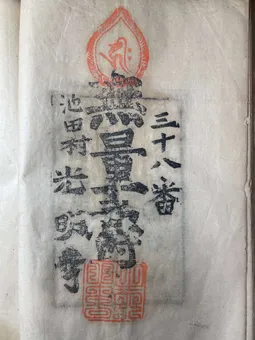 三十八番
無量寿殿
池田村光明寺